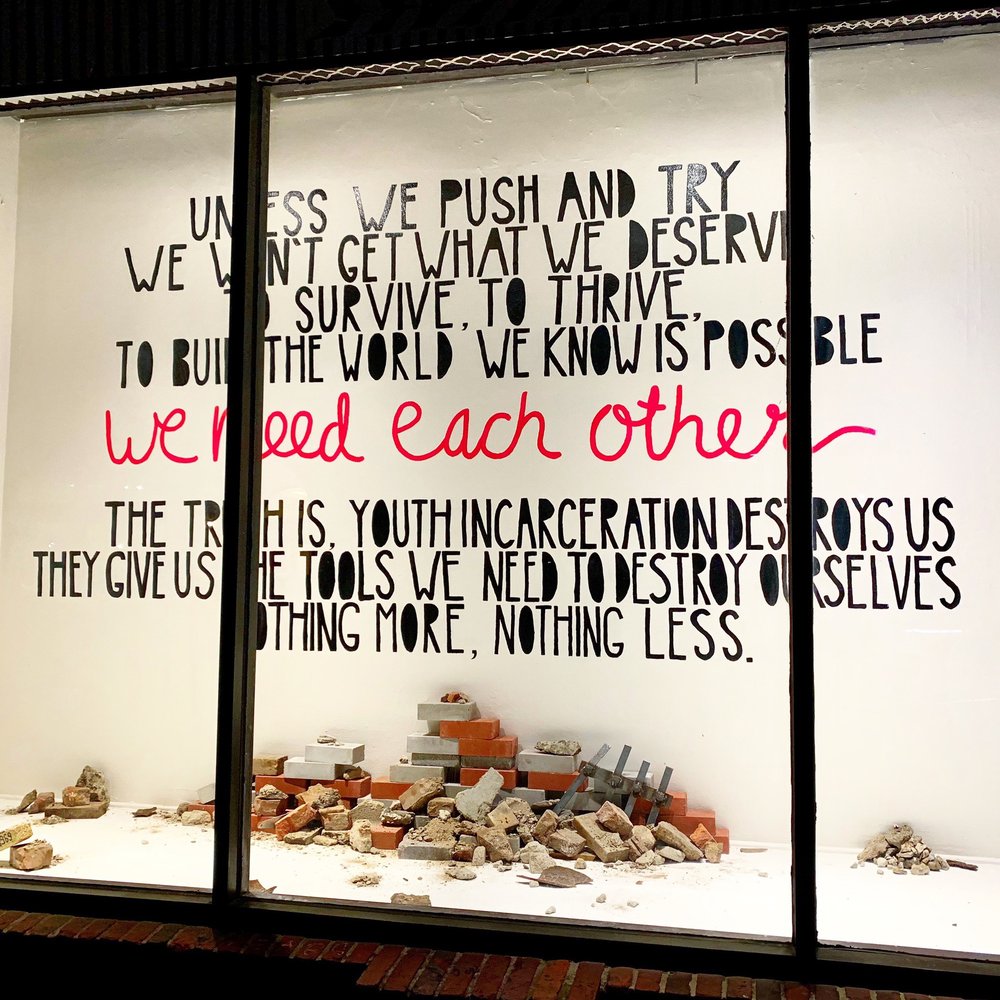 UNLESS WE PUSH AND TRY
WE WON'T GET WHAT WE DESERVE
TO SURVIVE, TO THRIVE,
TO BUILD THE WORLD WE KNOW IS POSSIBLE
we need each other
THE TRUTH IS, YOUTH INCARCERATION DESTROYS US
THEY GIVE US THE TOOLS WE NEED TO DESTROY OURSELVES
NOTHING MORE, NOTHING LESS.